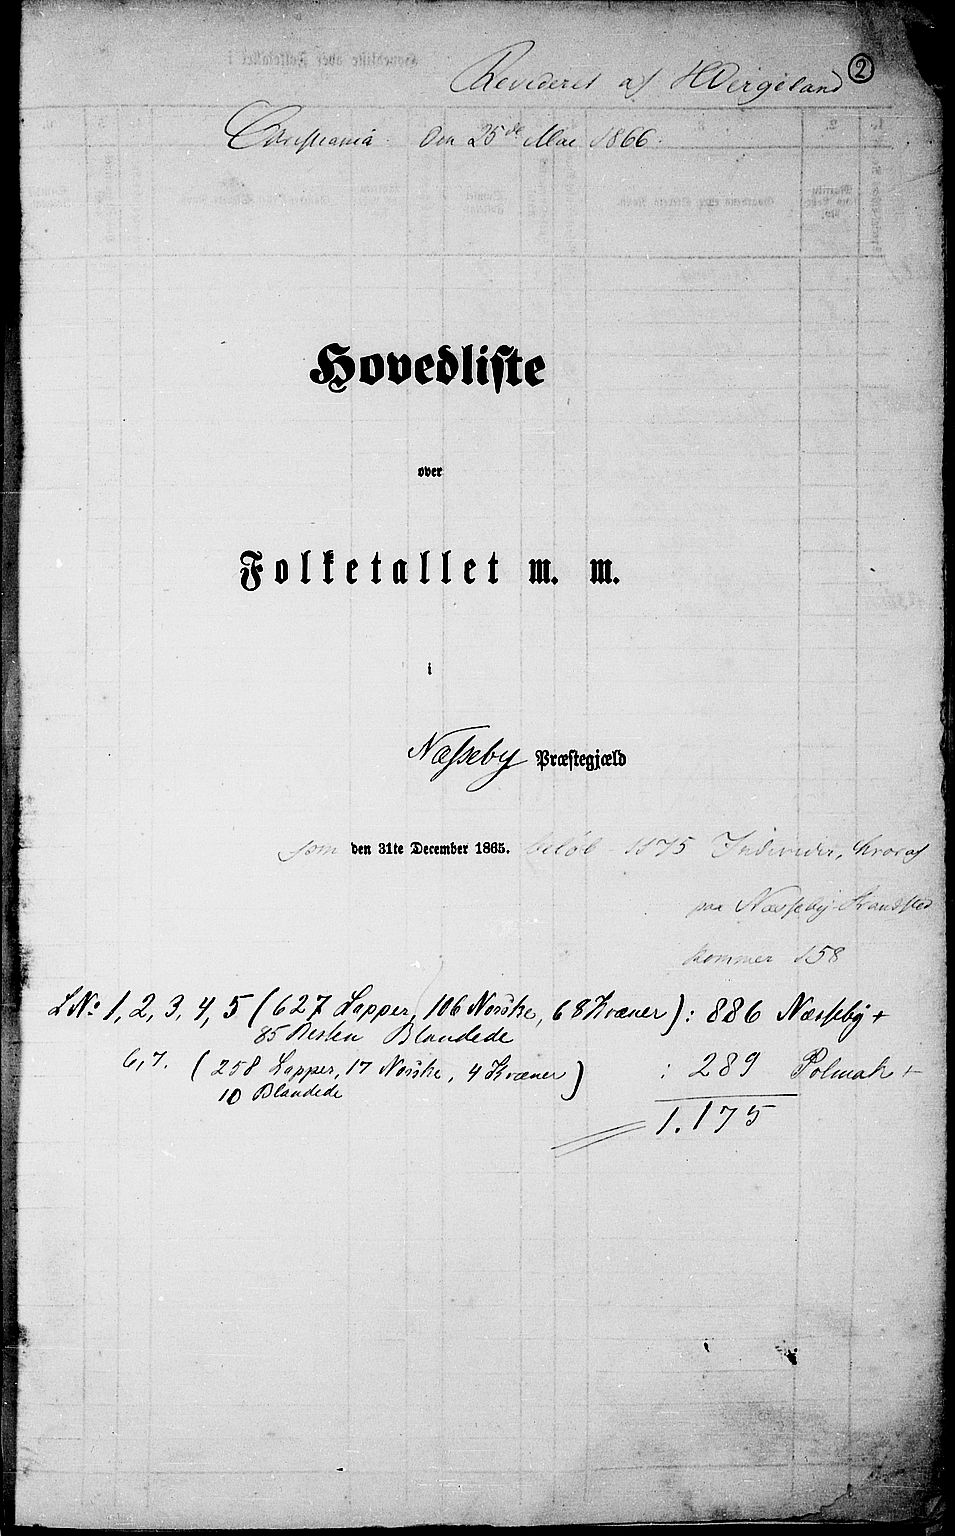 Revideret af HWergeland
2
Christiania den 25de Mai 1866.
Hovedliste
over
Folketallet m. m.
i
Næsseby Præstegjæld
som den 31te December 1865. beløb 1175 Individer, hvoraf
paa Næsseby Strandsted
kommer 158
LNo 1, 2, 3, 4, 5 (627 Lapper, 106 Norske, 68 Kvæner): 886 Næsseby +
85 Resten Blandede
6, 7. (258 Lapper, 17 Norske, 4 Kvæner) : 289 Polmak +
10 Blandede
1.175